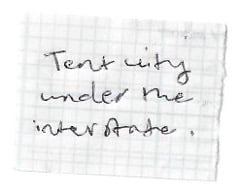 Tent city
under the
interstate.